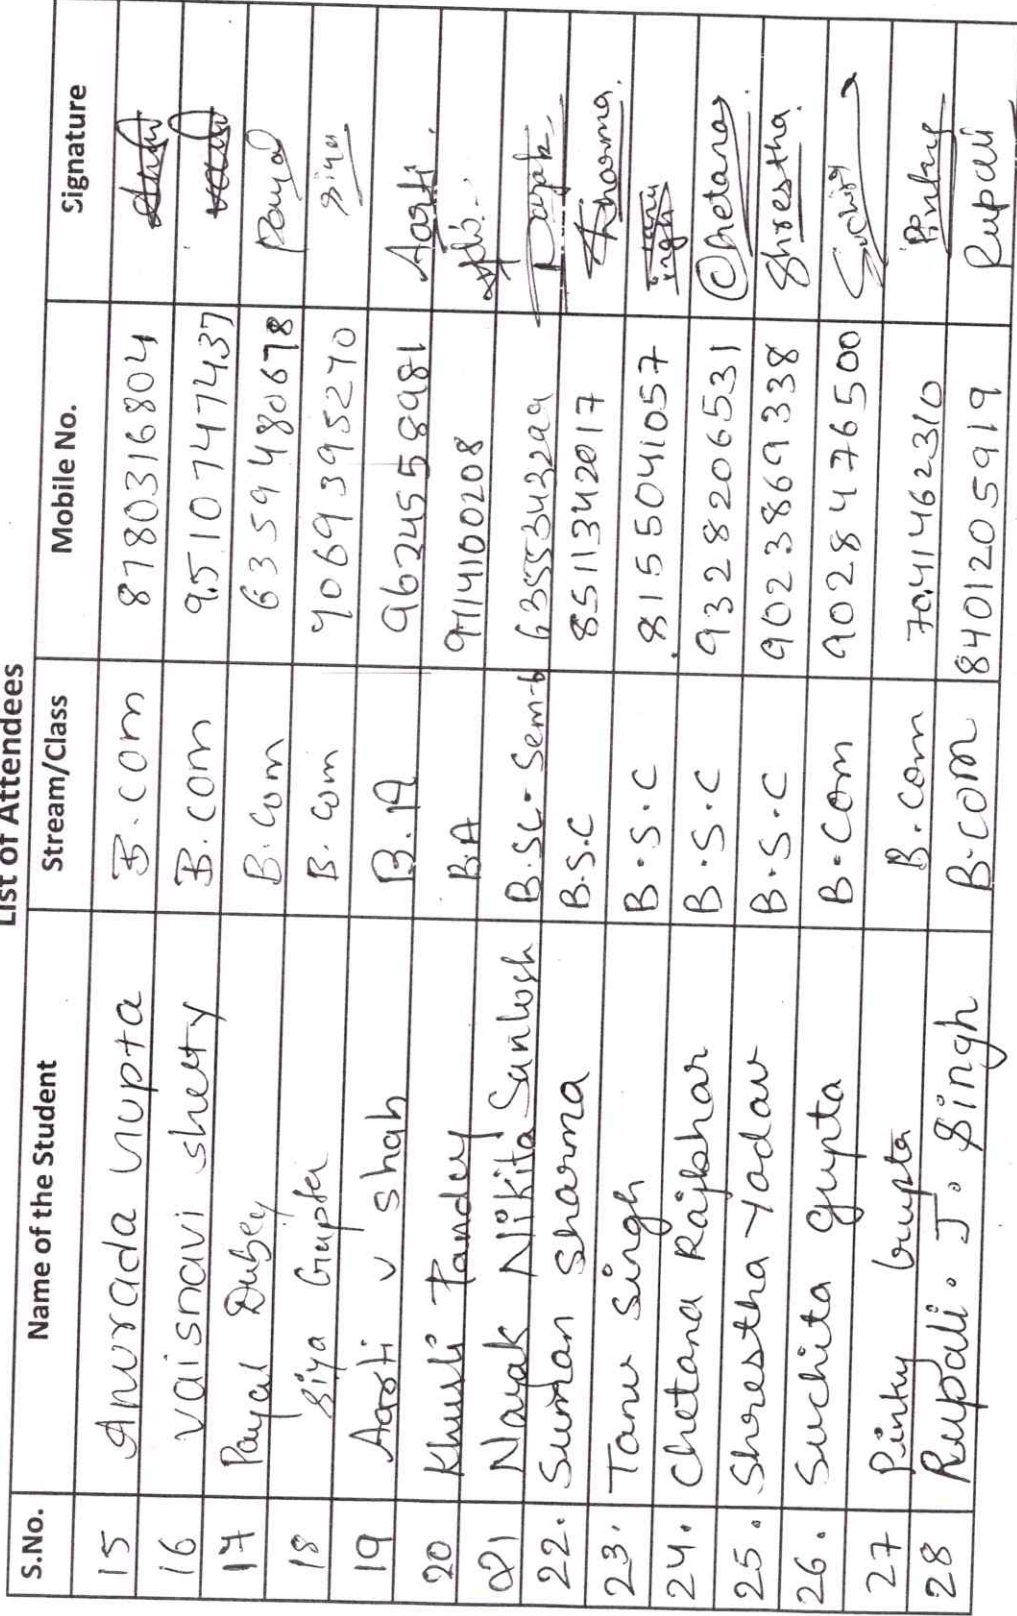 List of Attendees
S.No. Name of the Student Stream/Class Mobile No. Signature
15 Anurada Gupta B.com 8780316804
16 vaisnavi shetty B.com 9510747437
17 Payal Dubey B.com 6359480678 Payal
18 Siya Gupta B.com 9069395270 Siya
19 Aarti v shah B.A 9624558981 Aarti
20 Khushi Pandey BA 9714100208
21 Nayak Nikita Santosh B.Sc-Sem-6 6355343299 Nayak
22. Suman Sharma B.S.C 8511342017 Sharma.
23. Tanu Singh B.S.C 8155041057 Tanu Singh
24. Chetana Rajbhar B.S.C 9328206531 Chetana
25. Shrestha Yadav B.S.C 9023869338 Shrestha.
26. Suchita Gupta B.Com 9028476500
27 Pinky Gupta B.Com 7041462310 Pinky
28 Rupali. J. Singh B.com 8401205919 Rupali